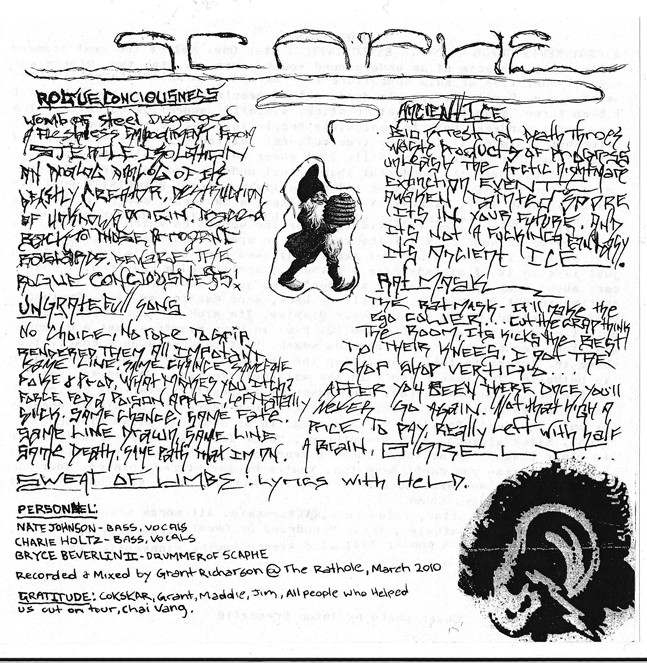 SCAPHE
ROGUE CONCIOUSNESS
WOMB OF STEEL DISGORGED
A FLESHLESS EMBODIMENT FROM
STERILE ISOLATION
AN ANALOG OF ITS
CREATOR, DESTRUCTION
OF UNKNOWN ORIGIN,
BACK TO THOSE ARROGENT
BASTARDS. BEWARE THE
ROGUE CONCIOUSNESS!
UNGRATEFULL
NO CHOICE, NO ROPE TO GRIP,
RENDERED THEM All IMPOTANT
SAME LINE. SAME CHANCE SAME FATE
WHAT MAKES YOU ITCH?
FORCE FED A POISON APPLE, LEFT FATALLY
SICK. SAME CHANCE, SAME FATE.
SAME LINE DRAWN, SAME LINE
SAME DEATH, SAME PATH THAT IM ON.
SWEAT OF LIMBS: Lyrics with HeLD.
ANCIENT ICE
BIO in Death Throes
Waste Products of PROGRESS
UNLEASH THE ARCTIC NIGHTMARE
EXTINCTION EVENT
AWAKEN TAINTED SPORE
ITS IN YOUR FUTURE. AND
ITS NOT A FUCKING FANTASY
ITS ANCIENT ICE
RAT MASK
THE RAT MASK. It'll make the
EGO COWER... CUT THE CRAP THINK
THE ROOM, ITS KICKS THE BEST
TO THEIR KNEES. I GOT THE
CHOP SHOP VERTIGO...
AFTER YOU BEEN THERE ONCE YOU'll
NEVER GO AGAIN. Not that high A
PRICE TO PAY, REALLY Left with half
A BRAIN,
PERSONNEL:
NATE JOHNSON - BASS, VOCALS
CHARIE HOLTZ - BASS, VOCALS
BRYCE BEVERLIN II - DRUMMER OF SCAPHE
Recorded & Mixed by Grant Richarson @ The Rathole, March 2010
GRATITUDE: COKSKAR, Grant, Maddie, Jim, All people who Helped
us cut on tour, Chai Vang.